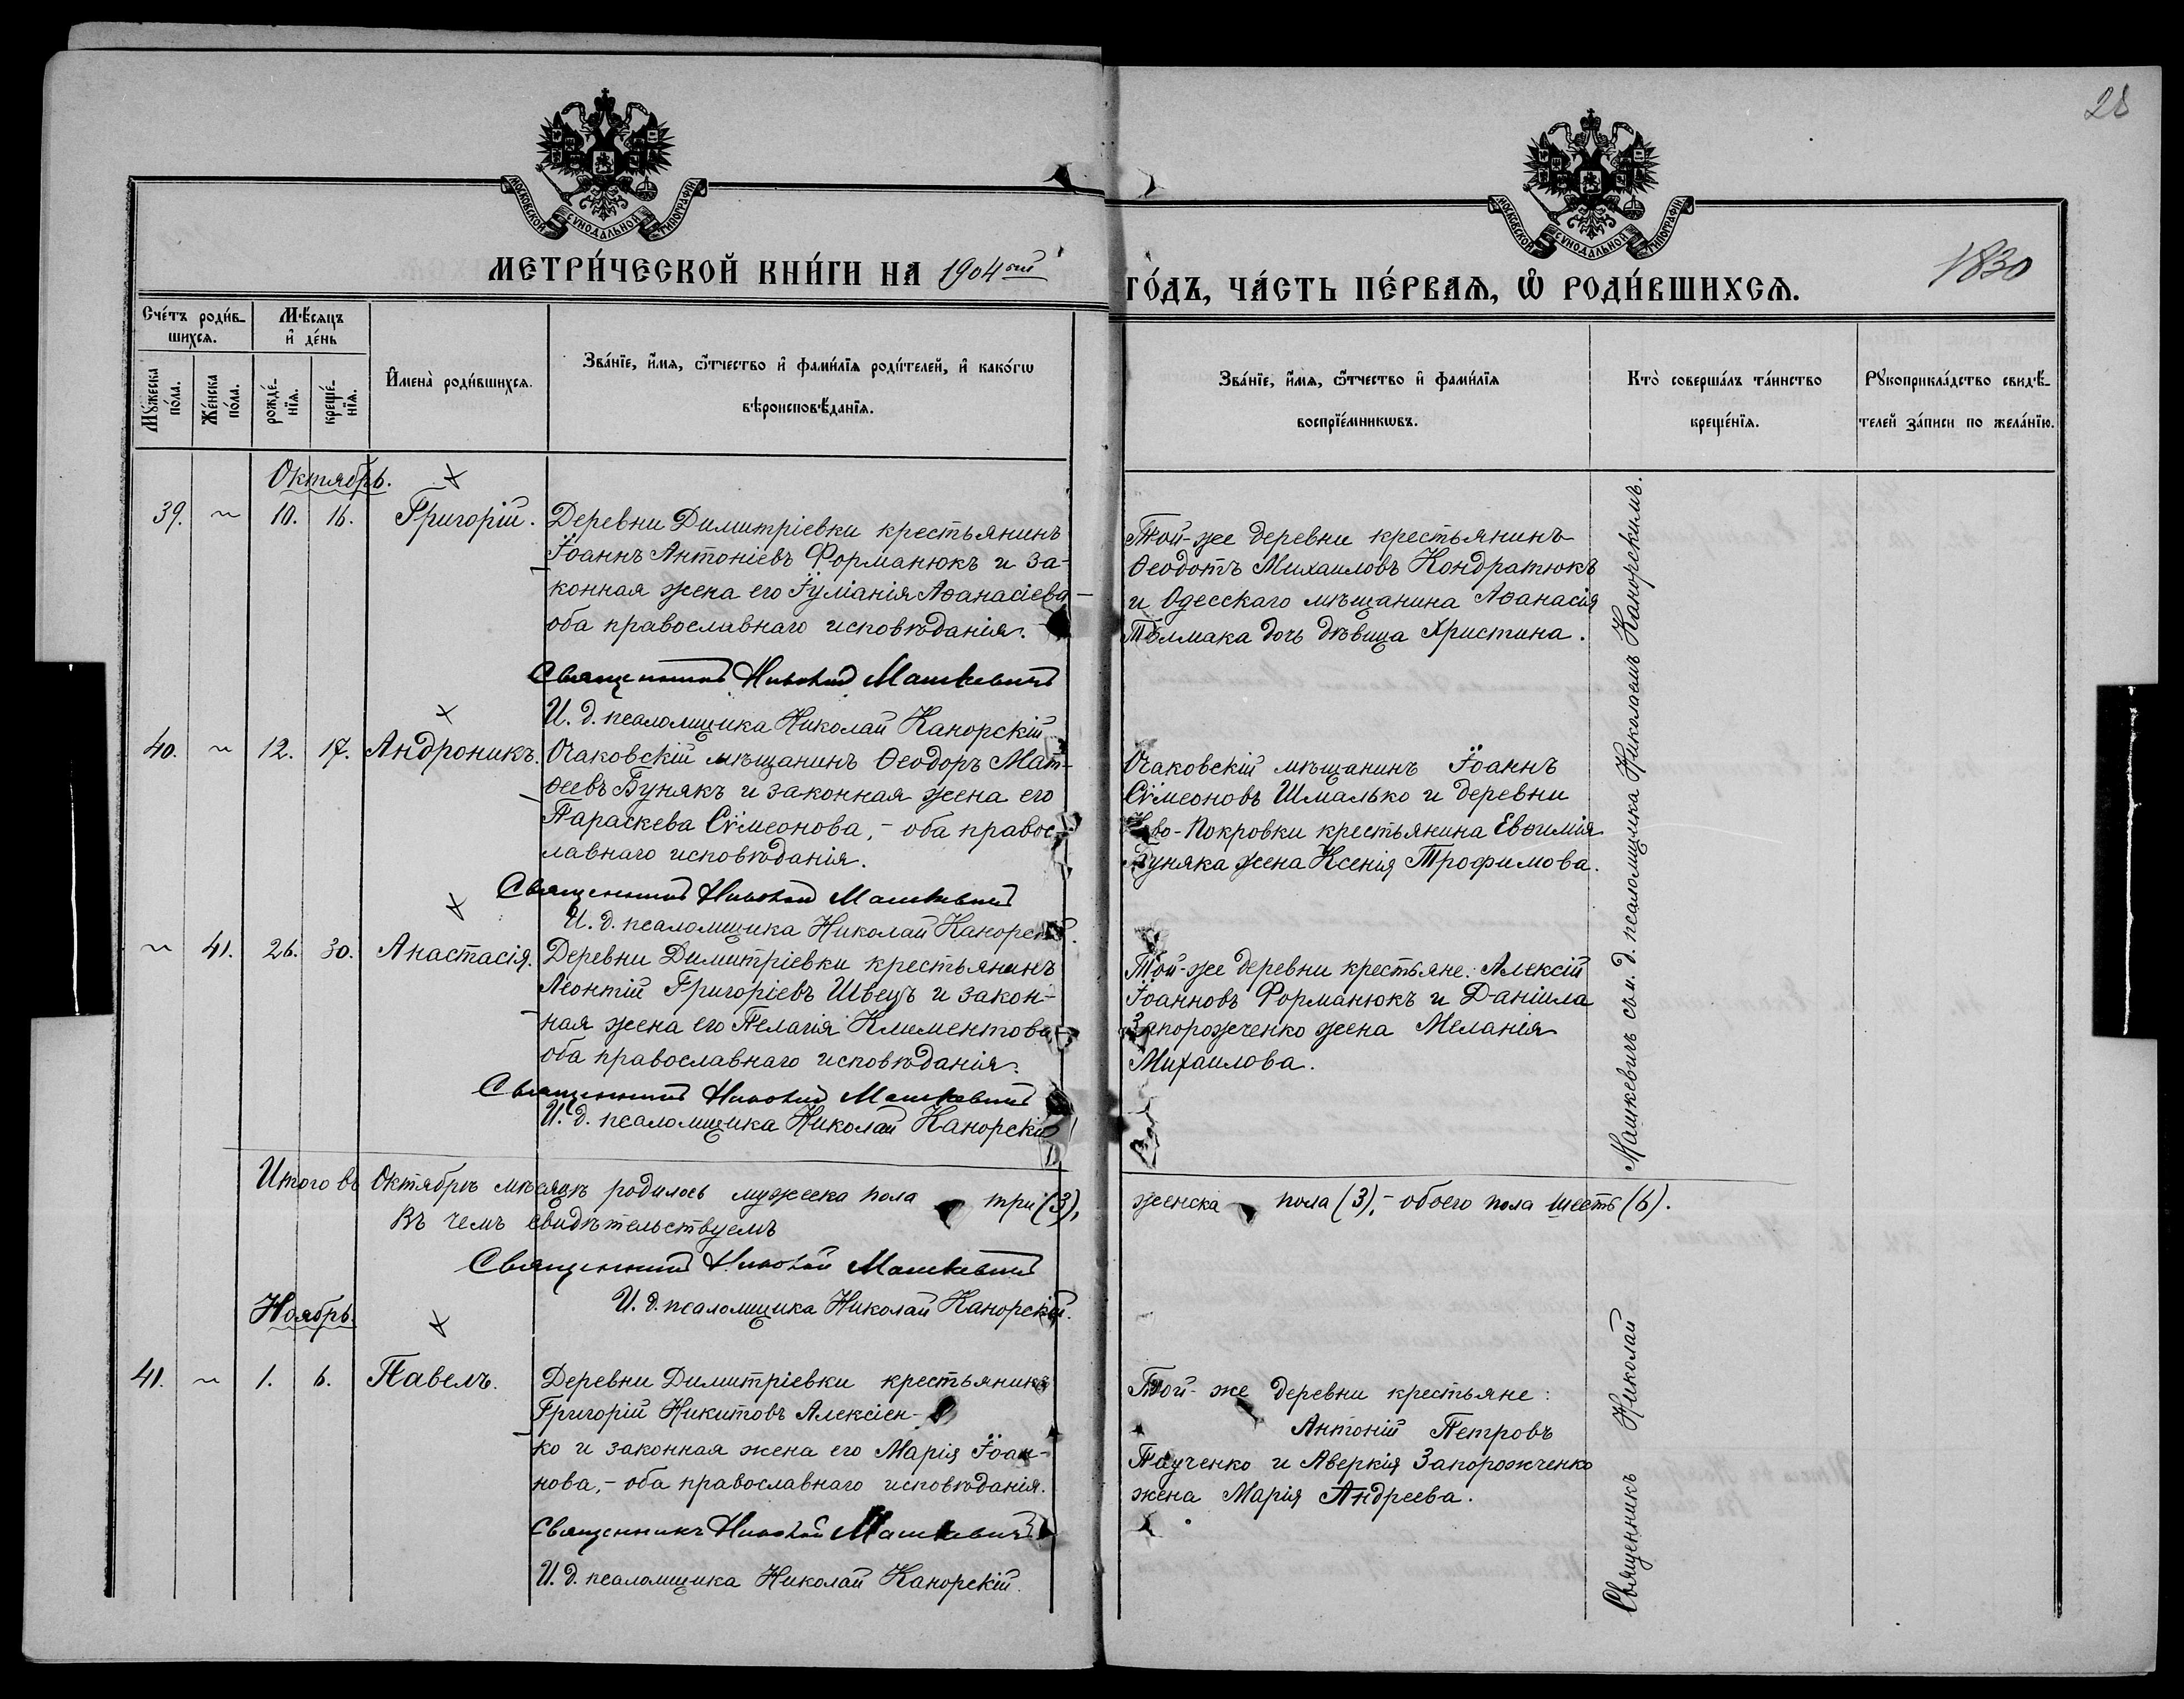 28
МОСКОВСКОЙ СѴНОДАЛЬНОЙ ТИПОГРАФІИ
МОСКОВСКОЙ СѴНОДАЛЬНОЙ ТИПОГРАФІИ
МЕТРИ́ЧЕСКОЙ КНИ́ГИ НА 1904ый
ГО́ДЪ, ЧА́СТЬ ПЕ́РВАЯ, Ѽ РОДИ́ВШИХСЯ.
1830
Сче́тъ роди́в-
шихся.
Мѣ́сяцъ
и҆ де́нь
Мꙋ́жеска по́ла.
Же́нска по́ла.
рожде́-нїя.
креще́-нїя.
И҆мена̀ роди́вшихся.
Зва́нїе, и҆́мя, ѻ҆́тчество и҆ фами́лїя роди́телей, и҆ како́гѡ
вѣроисповѣ́данїя.
Зва́нїе, и҆́мя, ѻ҆́тчество и҆ фами́лїя
воспрїе́мникѡвъ.
Кто̀ соверша́лъ та́инство
креще́нїя.
Рꙋкоприкла́дство свидѣ́-
телей за́писи по жела́нїю.
Октябрь.
39. ~ 10. 16. Григорій.
Деревни Димитріевки крестьянинъ
Іоаннъ Антоніевъ Форманюкъ и за-
конная жена его Іуліанія Аѳанасіева –
оба православнаго исповѣданія.
Священникъ Николай Машкевичъ
И. д. псаломщика Николай Канорскій
Той-же деревни крестьянинъ
Ѳеодотъ Михаиловъ Кондратюкъ
и Одесскаго мѣщанина Аѳанасія
Толмака дочь дѣвица Христина.
40. ~ 12. 17. Андроникъ.
Очаковскій мѣщанинъ Ѳеодоръ Мат-
ѳеевъ Бунякъ и законная жена его
Параскева Сѷмеонова, – оба правос-
лавнаго исповѣданія.
Священникъ Николай Машкевичъ
И. д. псаломщика Николай Канорскій.
Очаковскій мѣщанинъ Іоаннъ
Сѷмеоновъ Шмалько и деревни
Ново-Покровки крестьянина Евѳимія
Буняка жена Ксенія Трофимова.
~ 41. 26. 30. Анастасія.
Деревни Димитріевки крестьянинъ
Леонтій Григоріевъ Швецъ и закон-
ная жена его Пелагія Климентова
оба православнаго исповѣданія.
Священникъ Николай Машкевичъ
И. д. псаломщика Николай Канорскій
Той-же деревни крестьяне: Алексій
Іоанновъ Форманюкъ и Даніила
Запорожченко жена Меланія
Михаилова.
Итого въ Октябрѣ мѣсяцѣ родилось мужеска пола три (3),
женска пола (3), – обоего пола шесть (6).
Въ чемъ свидѣтельствуемъ
Священникъ Николай Машкевичъ
И. д. псаломщика Николай Канорскій.
Ноябрь.
41. ~ 1. 6. Павелъ.
Деревни Димитріевки крестьянинъ
Григорій Никитовъ Алексіен-
ко и законная жена его Марія Іоан-
нова, – оба православнаго исповѣданія.
Священникъ Николай Машкевичъ
И. д. псаломщика Николай Канорскій.
Той-же деревни крестьяне:
Антоній Петровъ
Паученко и Аверкія Запорожченко
жена Марія Андреева.
Священникъ Николай Машкевичъ съ и. д. псаломщика Николаемъ Канорскимъ.